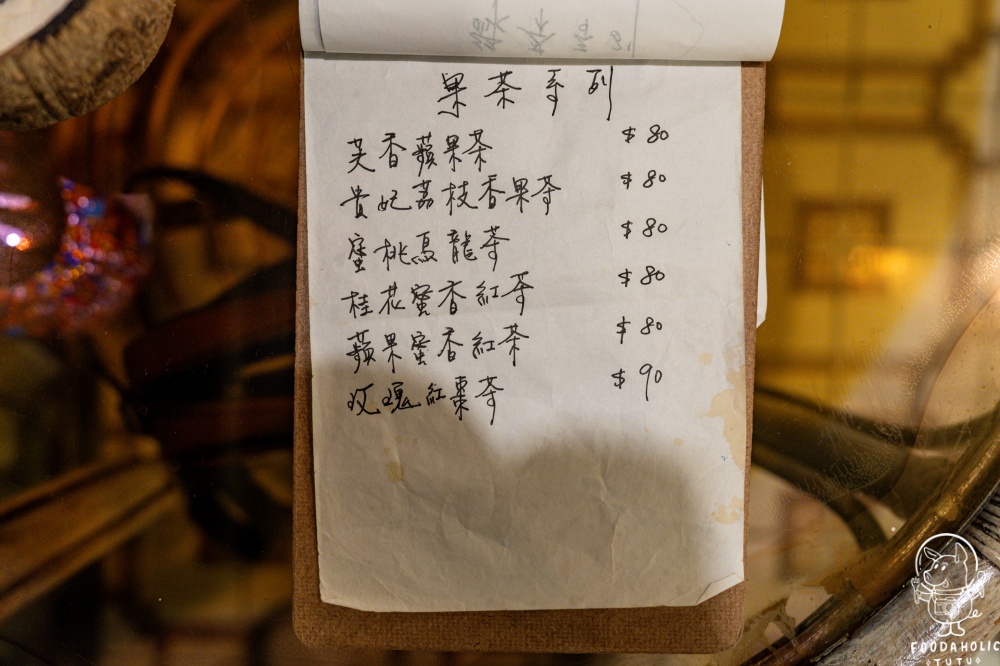 果茶系列
芙香蘋果茶 $80
貴妃荔枝香果茶 $80
蜜桃烏龍茶 $80
桂花蜜香紅茶 $80
蘋果蜜香紅茶 $80
玫瑰紅棗茶 $90
FOODAHOLIC
TUTU